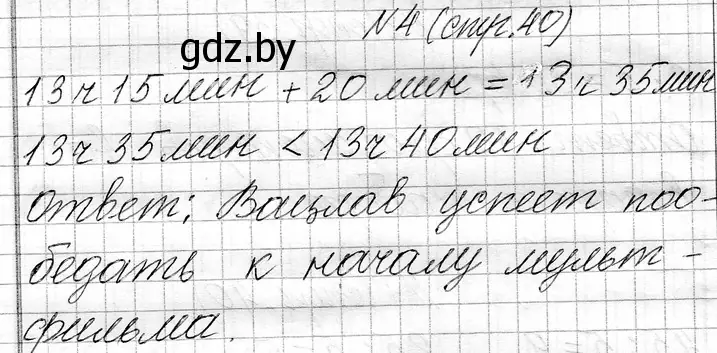 N4 (стр.40)
gdz.by
13ч 15мин + 20мин = 13ч 35мин
13ч 35мин < 13ч 40мин
Ответ: Вацлав успеет поо-
бедать к началу мульт-
фильма.